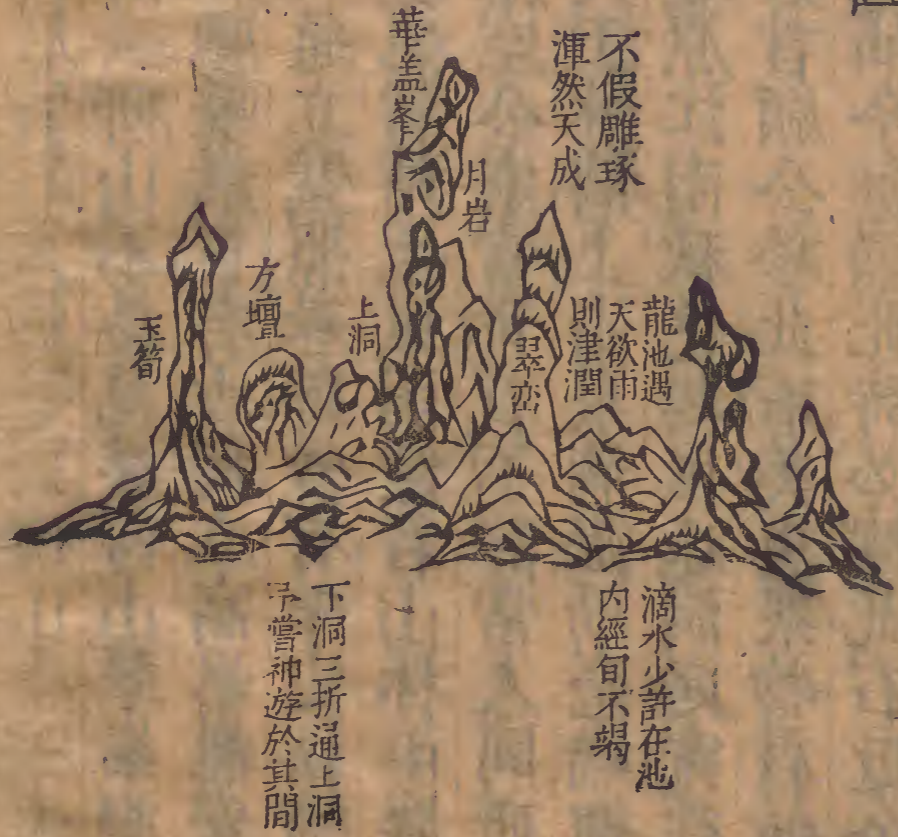 不假雕琢
渾然天成
華盖峯
月岩
龍池遇
天欲雨
則津潤
翠巒
上洞
方壇
玉筍
滴水少許在池
内經旬不竭
下洞三折通上洞
予嘗神遊於其間